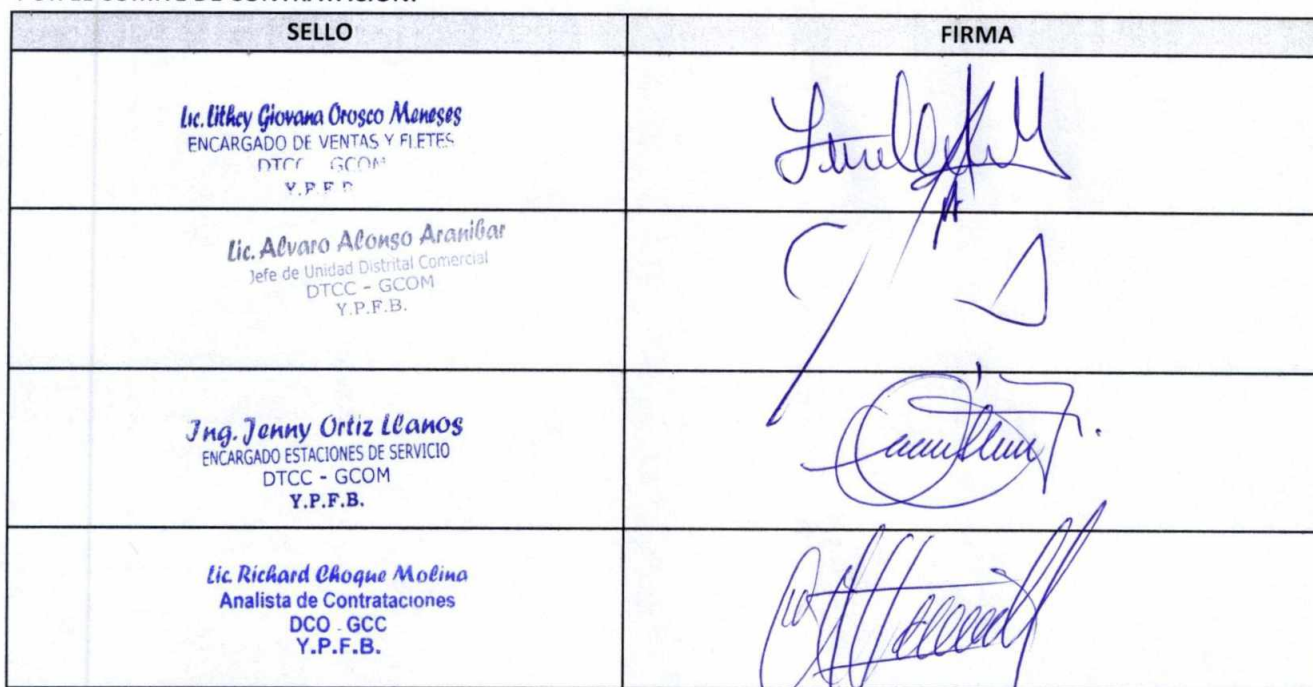 SELLO
FIRMA
Lic. Lithcy Giovana Orosco Meneses
ENCARGADO DE VENTAS Y FLETES
DTCC GCOM
Y.P.F.B.
Lic. Alvaro Alonso Aranibar
Jefe de Unidad Distrital Comercial
DTCC - GCOM
Y.P.F.B.
Ing. Jenny Ortiz Llanos
ENCARGADO ESTACIONES DE SERVICIO
DTCC - GCOM
Y.P.F.B.
Lic. Richard Choque Molina
Analista de Contrataciones
DCO - GCC
Y.P.F.B.